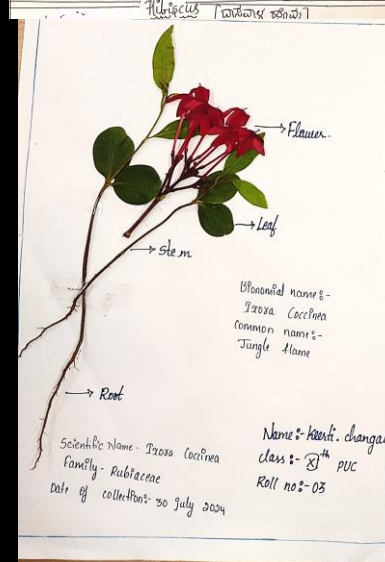 Hibiscus [ದಾಸವಾಳ ಹೂವು]
Flower.
Leaf
Stem
Bionomial name:-
Ixora Coccinea
Common name:-
Jungle flame
Root
Scientific Name - Ixora Coccinea
Family - Rubiaceae
Date of collection:- 30 july 2024
Name:- Keerti. changa
class:- X th PUC
Roll no:- 03